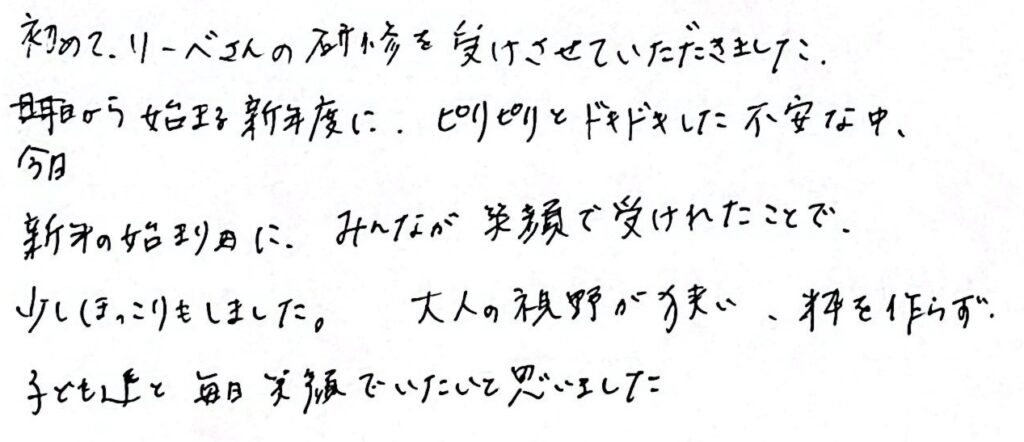 初めて、リーベさんの研修を受けさせていただきました。
明日から始まる新年度に、ピリピリとドキドキした不安な中、
今日
新年の始まり日に、みんなが笑顔で受けれたことで、
少しほっこりもしました。 大人の視野が狭い、枠を作らず、
子ども達と毎日笑顔でいたいと思いました